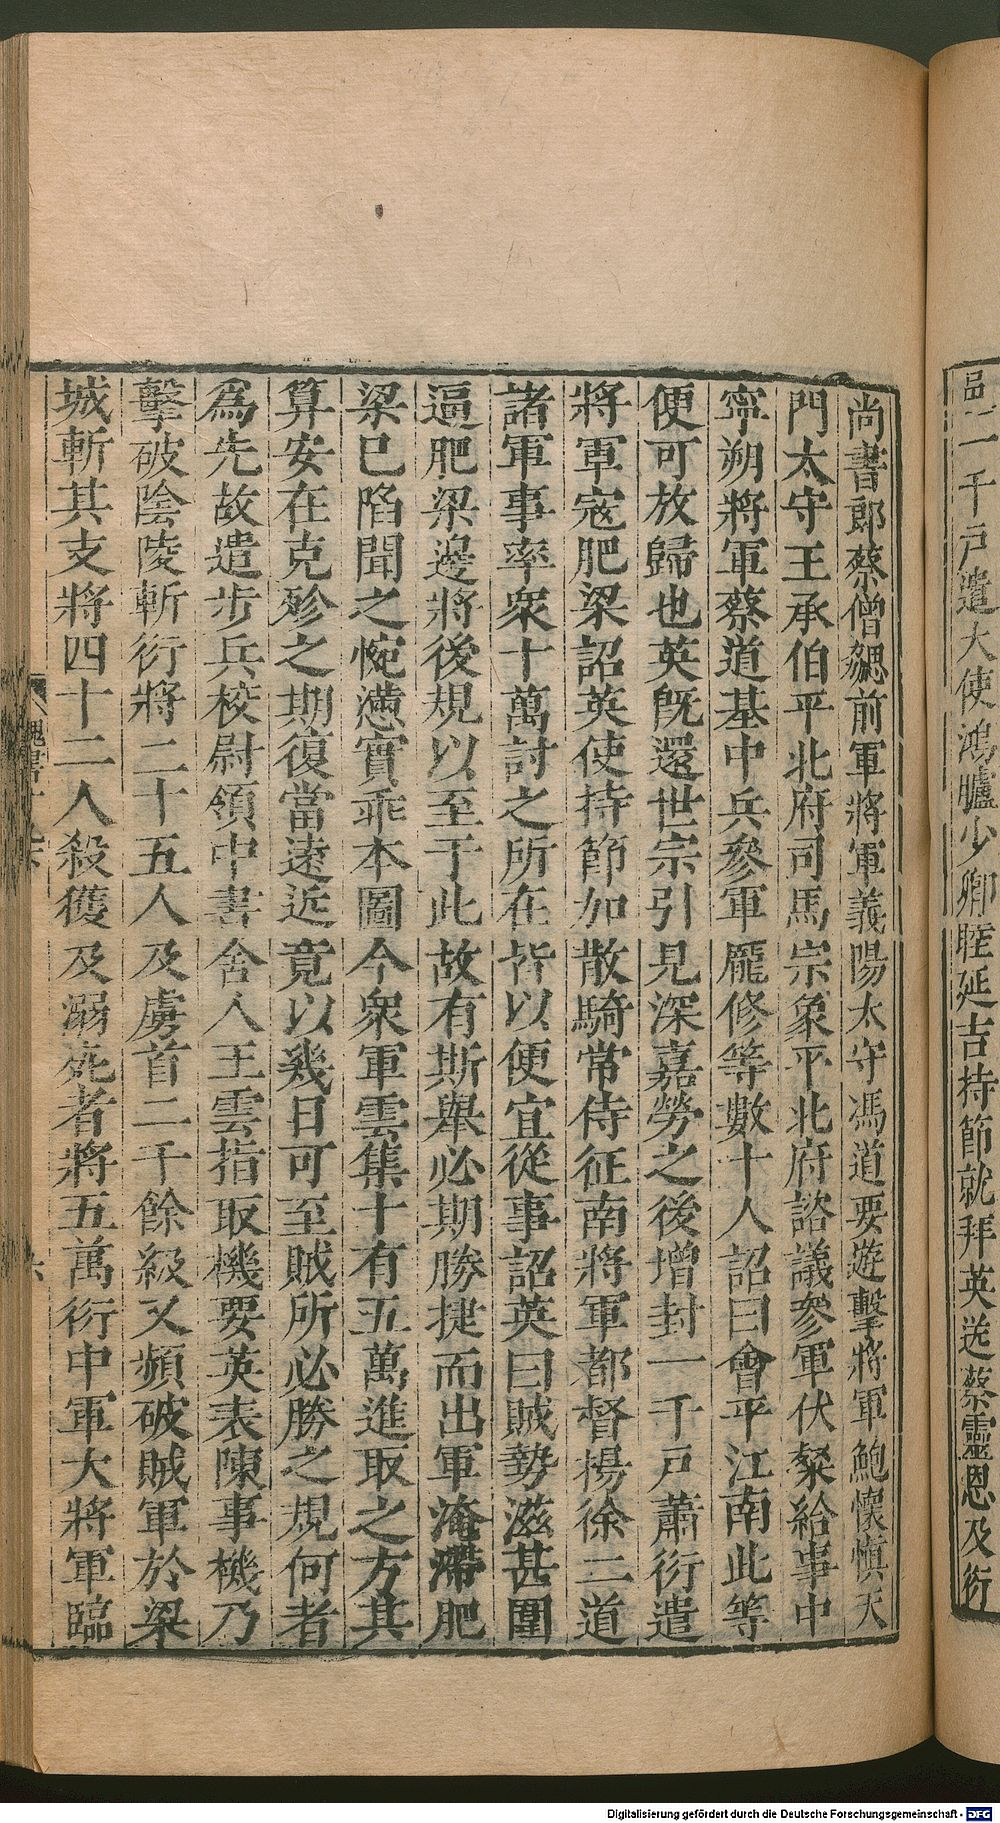 邑一千戸遣大使鴻臚少卿睦延吉持節就拜英送蔡靈恩及衍
尚書郎蔡僧勰前軍將軍義陽太守馮道要遊擊將軍鮑懷慎天
門太守王承伯平北府司馬宗象平北府諮議參軍伏粲給事中
寧朔將軍蔡道基中兵參軍龐修等數十人詔曰會平江南此等
便可放歸也英旣還世宗引見深嘉勞之後增封一千戸蕭衍遣
將軍寇肥梁詔英使持節加散騎常侍征南將軍都督楊徐二道
諸軍事率衆十萬討之所在皆以便宜從事詔英曰賊勢滋甚圍
逼肥梁邊將後規以至于此故有斯舉必期勝捷而出軍淹滯肥
梁已陷聞之惋懣實乖本圖今衆軍雲集十有五萬進取之方其
算安在克殄之期復當遠近竟以幾日可至賊所必勝之規何者
爲先故遣步兵校尉領中書舍人王雲指取機要英表陳事機乃
擊破陰陵斬衍將二十五人及虜首二千餘級又頻破賊軍於梁
城斬其支將四十二人殺獲及溺死者將五萬衍中軍大將軍臨
魏書
六
Digitalisierung gefördert durch die Deutsche Forschungsgemeinschaft - DFG